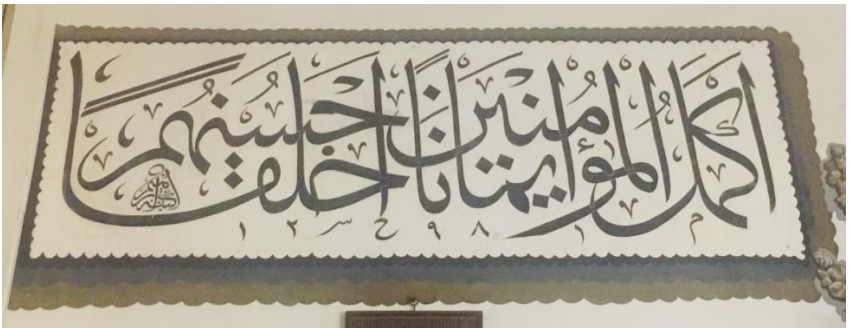 أكمل المؤمنين إيمانًا أحسنهم خلقًا